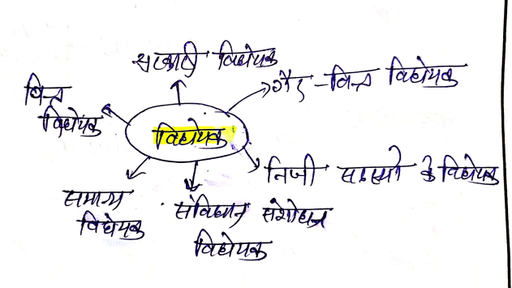 सरकारी विधेयक
गैर - वित्त विधेयक
वित्त
विधेयक
विधेयक
निजी सदस्यो के विधेयक
समान्य
विधेयक
संविधान संशोधन
विधेयक